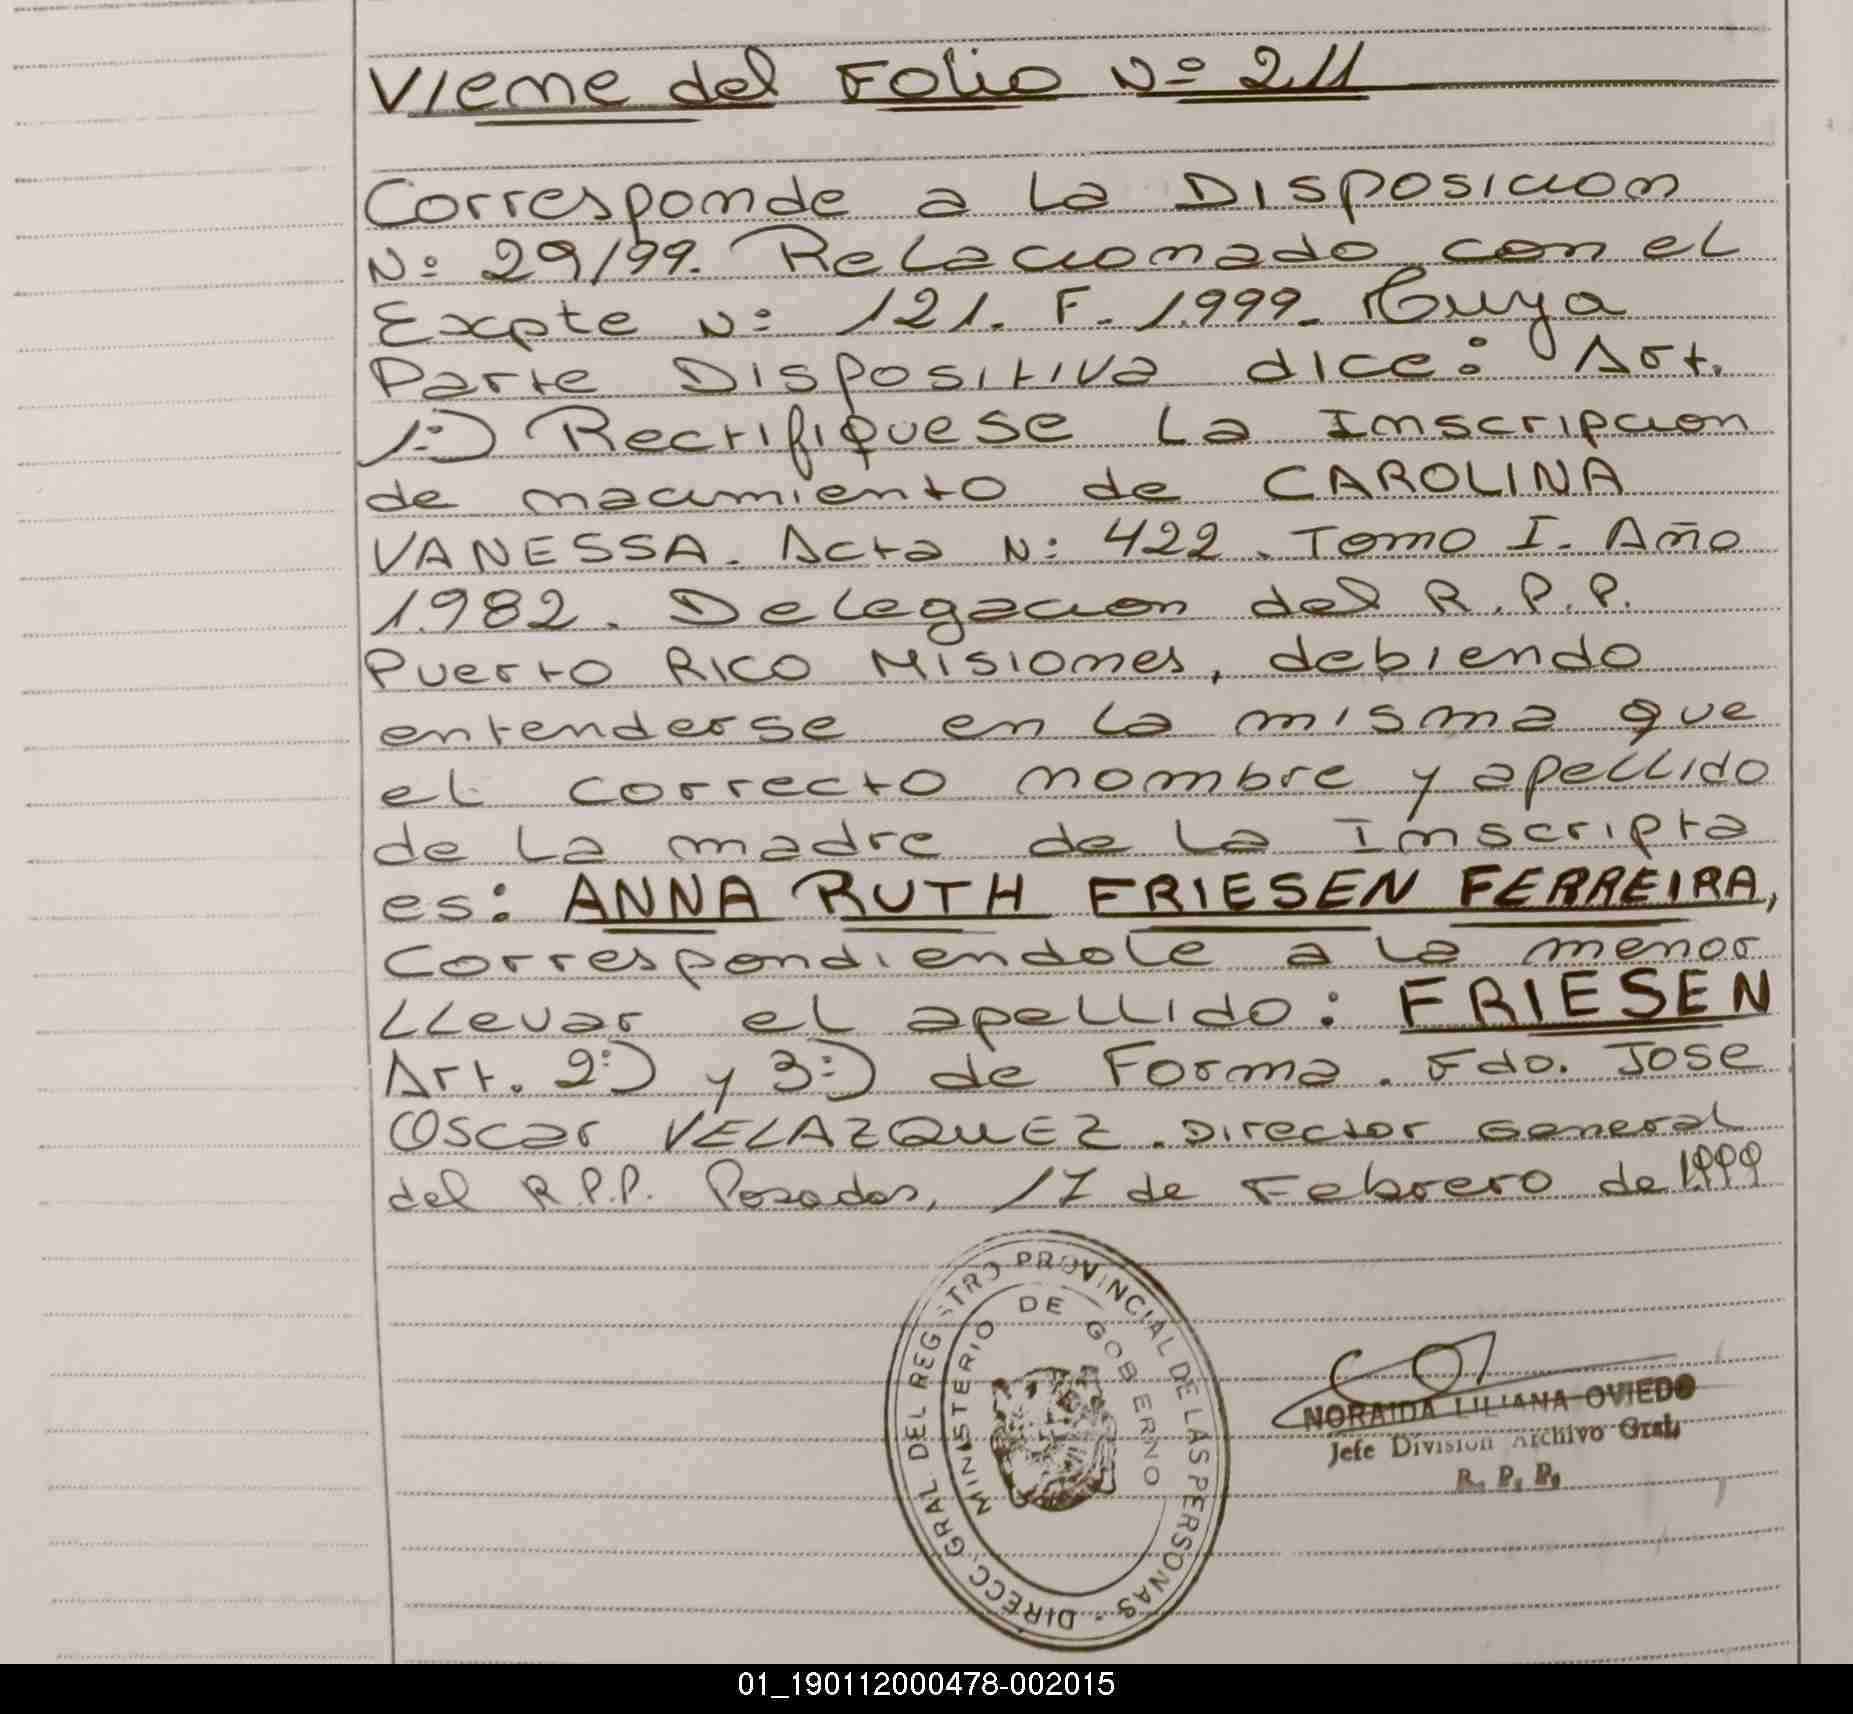 Viene del Folio Nº 211
Corresponde a la Disposicion
Nº 29/99. Relacionado con el
Expte Nº 121. F. 1.999. Cuya
Parte Dispositiva dice: Art.
1º) Rectifiquese la Inscripcion
de nacimiento de CAROLINA
VANESSA. Acta Nº 422. Tomo I. Año
1.982. Delegacion del R.P.P.
Puerto Rico Misiones, debiendo
entenderse en la misma que
el correcto nombre y apellido
de la madre de la Inscripta
es: ANNA RUTH FRIESEN FERREIRA,
Correspondiendole a la menor
llevar el apellido: FRIESEN
Art. 2º) y 3º) de Forma. Fdo. Jose
Oscar VELAZQUEZ. Director General
del R.P.P. Posadas, 17 de Febrero de 1.999
DIRECC. GRAL DEL REGISTRO PROVINCIAL DE LAS PERSONAS
MINISTERIO DE GOBIERNO
NORAIDA LILIANA OVIEDO
Jefe Division Archivo Gral.
R. P. P.
01_190112000478-002015